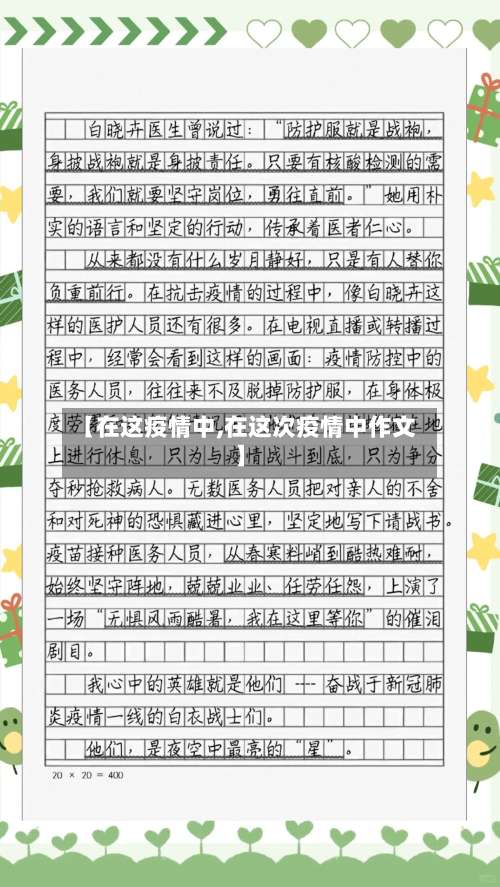 白晓卉医生曾说过：“防护服就是战袍，
身披战袍就是身披责任。只要有核酸检测的需
要，我们就要坚守岗位，勇往直前。”她用朴
实的语言和坚定的行动，传承着医者仁心。
从来都没有什么岁月静好，只是有人替你
负重前行。在抗击疫情的过程中，像白晓卉这
样的医护人员还有很多。在电视直播或转播过
程中，经常会看到这样的画面：疫情防控中的
医务人员，往往来不及脱掉防护服，在身体极
度劳
【在这疫情中,在这次疫情中作文
】
上进行休息，只为与疫情战斗到底，只为争分
夺秒抢救病人。无数医务人员把对亲人的不舍
和对死神的恐惧藏进心里，坚定地写下请战书。
疫苗接种医务人员，从春寒料峭到酷热难耐，
始终坚守阵地，兢兢业业、任劳任怨，上演了
一场“无惧风雨酷暑，我在这里等你”的催泪
剧目。
我心中的英雄就是他们 ---- 奋战于新冠肺
炎疫情一线的白衣战士们。
他们，是夜空中最亮的“星”。
20 × 20 = 400